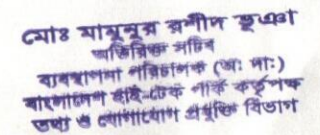 মোঃ মামুনুর রশীদ ভূঞা
অতিরিক্ত সচিব
ব্যবস্থাপনা পরিচালক (অঃ দাঃ)
বাংলাদেশ হাই-টেক পার্ক কর্তৃপক্ষ
তথ্য ও যোগাযোগ প্রযুক্তি বিভাগ